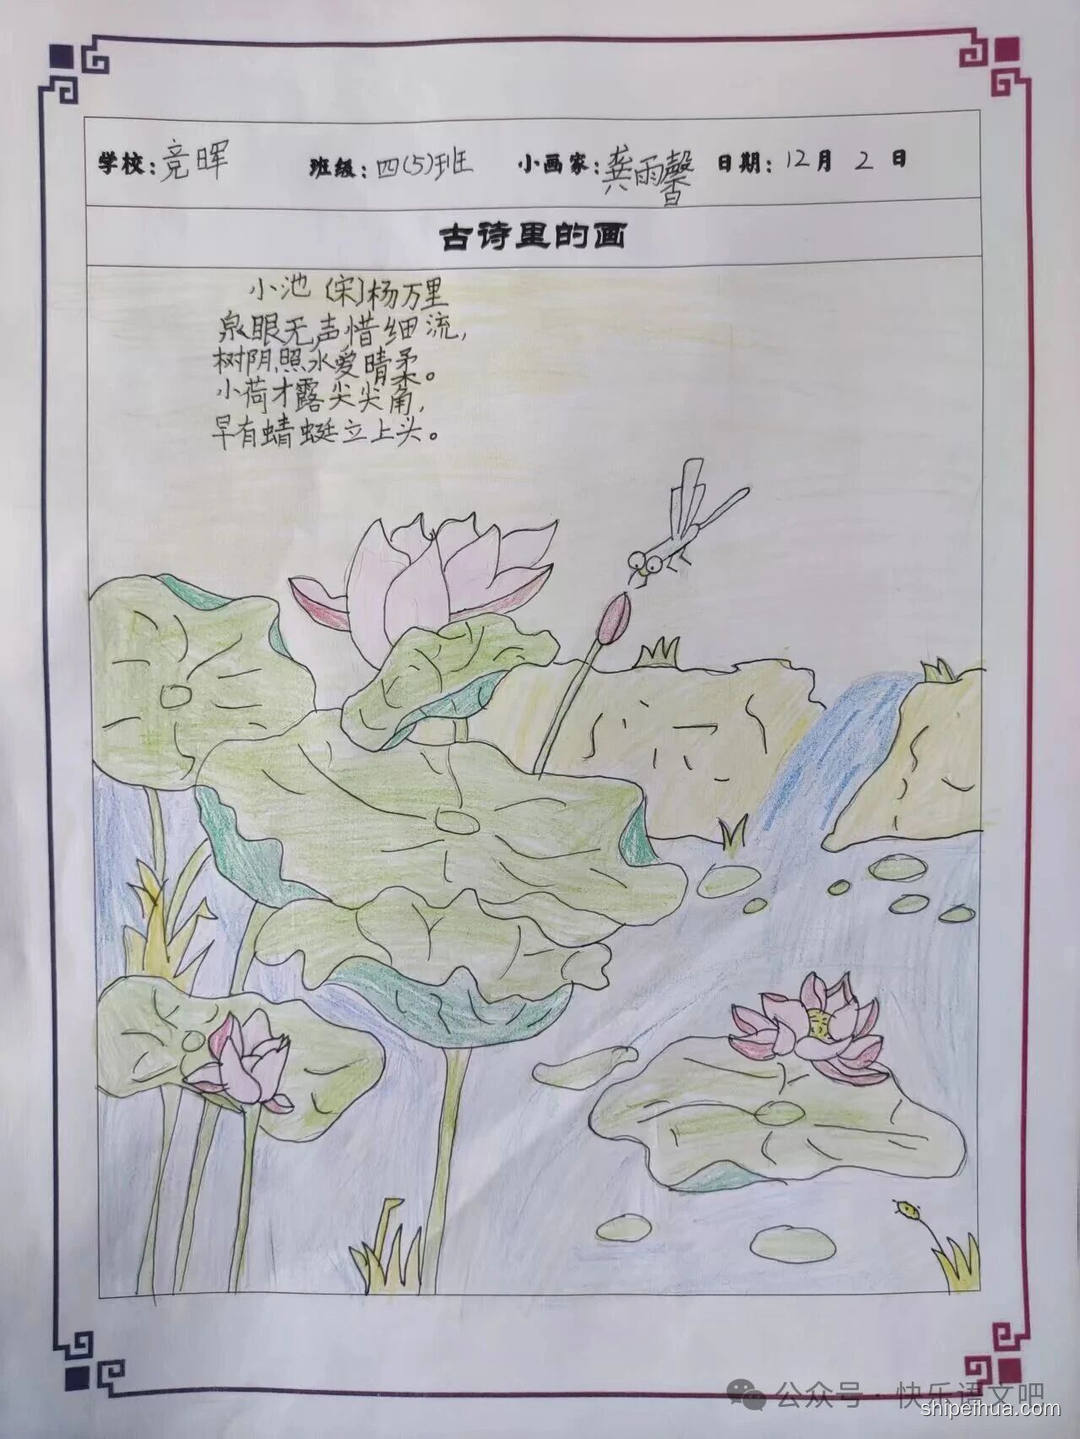 学校：竞晖 班级：四(5)班 小画家：龚雨馨 日期：12月2日
古诗里的画
小池〔宋〕杨万里
泉眼无声惜细流，
树阴照水爱晴柔。
小荷才露尖尖角，
早有蜻蜓立上头。
公众号·快乐语文吧
shipeihua.com